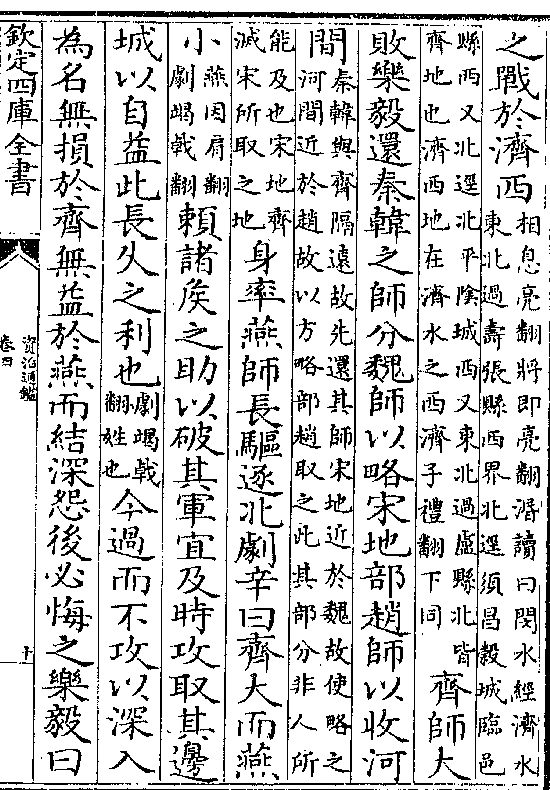 之戰於濟西
相息亮翻將即亮翻湣讀曰閔水經濟水
東北過壽張縣西界北逕須昌穀城臨邑
縣西又北逕北平陰城西又東北過盧縣北皆
齊地也濟西地在濟水之西濟子禮翻下同
齊師大
敗樂毅還秦韓之師分魏師以略宋地部趙師以收河
間
秦韓與齊隔遠故先還其師宋地近於魏故使略之
河間近於趙故以方略部趙取之此其部分非人所
能及也宋地齊
滅宋所取之地
身率燕師長驅逐北劇辛曰齊大而燕
小
燕因肩翻
劇竭戟翻
賴諸侯之助以破其軍宜及時攻取其邊
城以自益此長久之利也
劇竭戟
翻姓也
今過而不攻以深入
為名無損於齊無益於燕而結深怨後必悔之樂毅曰
欽定四庫全書
資治通鑑
卷四
十